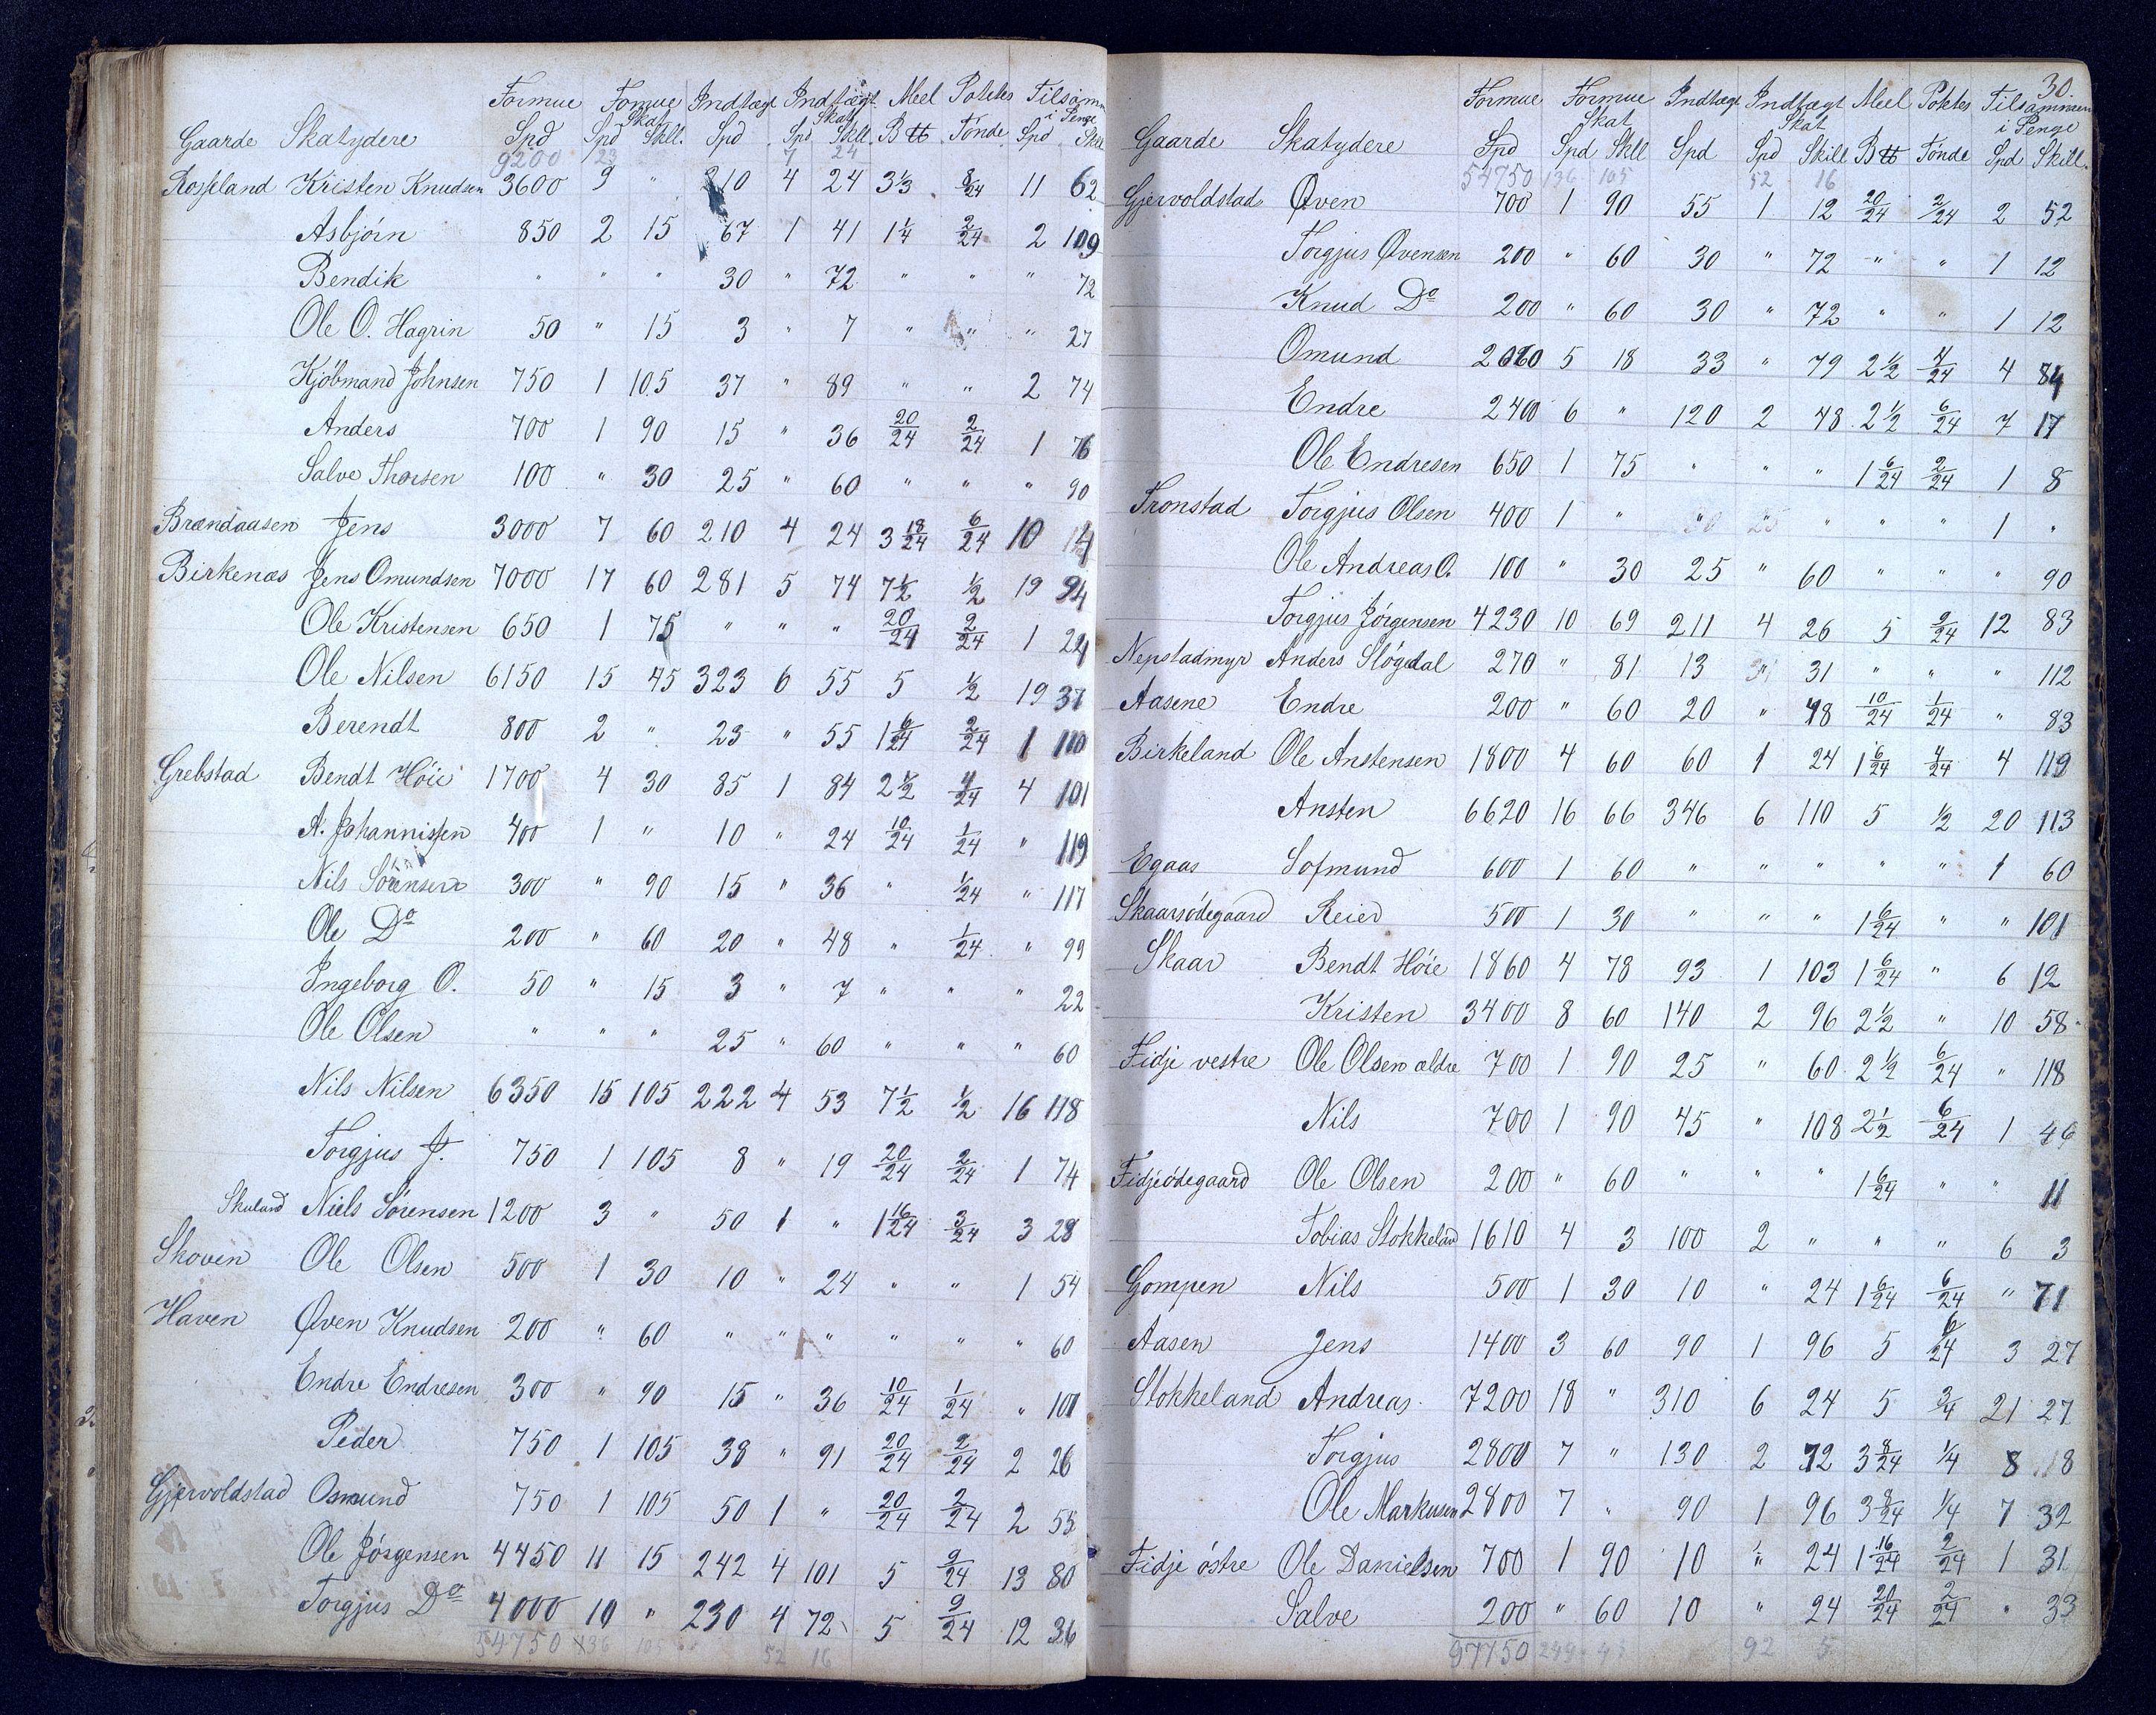 Formue Formue Indtægt Indtægt Meel Potetes Tilsamm
Skat Skat i Penge
Gaarde Skatydere Spd Spd Skll. Spd Spd Skll B ℔ Tønde Spd Skll
9200 23 7 24
Rosseland Kristen Knudsen 3600 9 " 210 4 24 3⅓ 8/24 11 62
Asbjörn 850 2 15 67 1 41 1¼ 2/24 2 109
Bendik " " " 30 " 72 " " " 72
Ole O. Hagrin 50 " 15 3 " 7 " " " 27
Kjöbmand Johnsen 750 1 105 37 " 89 " " 2 74
Anders 700 1 90 15 " 36 20/24 2/24 1 76
Salve Thorsen 100 " 30 25 " 60 " " " 90
Brændaasen Jens 3000 7 60 210 4 24 3 18/24 6/24 10 14
Birkenæs Jens Omundsen 7000 17 60 281 5 74 7½ ½ 19 94
Ole Kristensen 650 1 75 " " " 20/24 2/24 1 24
Ole Nilsen 6150 15 45 323 6 55 5 ½ 19 37
Berendt 800 2 " 23 " 55 1 6/24 2/24 1 110
Grebstad Bendt Höie 1700 4 30 85 1 84 2½ 4/24 4 101
A. Johannissen 400 1 " 10 " 24 10/24 1/24 " 119
Nils Sörensen 300 " 90 15 " 36 " 1/24 " 117
Ole Do 200 " 60 20 " 48 " 1/24 " 99
Ingeborg O. 50 " 15 3 " 7 " " " 22
Ole Olsen " " " 25 " 60 " " " 60
Nils Nilsen 6350 15 105 222 4 53 7½ ½ 16 118
Torgjus J. 750 1 105 8 " 19 20/24 2/24 1 74
Skuland Niels Sörensen 1200 3 " 50 1 " 1 16/24 3/24 3 28
Skoven Ole Olsen 500 1 30 10 " 24 " " 1 54
Haven Øven Knudsen 200 " 60 " " " " " " 60
Endre Endresen 300 " 90 15 " 36 10/24 1/24 " 101
Peder 750 1 105 38 " 91 20/24 2/24 2 26
Gjervoldstad Osmund 750 1 105 50 1 " 20/24 2/24 2 55
Ole Jörgensen 4450 11 15 242 4 101 5 9/24 13 80
Torgjus Do 4000 10 " 230 4 72 5 9/24 12 36
54750 136 105 52 16
30.
Formue Formue Indtægt Indtægt Meel Potetes Tilsammen
Skat Skat i Penge
Gaarde Skatydere Spd Spd Skll Spd Spd Skill B ℔ Tønde Spd Skill.
54750 136 105 52 16
Gjervoldstad Øven 700 1 90 55 1 12 20/24 2/24 2 52
Torgjus Øvensen 200 " 60 30 " 72 " " 1 12
Knud Do 200 " 60 30 " 72 " " 1 12
Omund 2060 5 18 33 " 79 2½ 4/24 4 84
Endre 2400 6 " 120 2 48 2½ 6/24 7 17
Ole Endresen 650 1 75 " " " 1 6/24 2/24 1 8
Tronstad Torgjus Olsen 400 1 " " " " " " 1 "
Ole Andreas O. 100 " 30 25 " 60 " " " 90
Torgjus Jörgensen 4230 10 69 211 4 26 5 9/24 12 83
Nepstadmyr Anders Slögdal 270 " 81 13 " 31 " " " 112
Aasene Endre 200 " 60 20 " 48 10/24 1/24 " 83
Birkeland Ole Anstensen 1800 4 60 60 1 24 1 6/24 4/24 4 119
Ansten 6620 16 66 346 6 110 5 ½ 20 113
Egaas Sofmund 600 1 60 " " " " " 1 60
Skaarsödegaard Reier 500 1 30 " " " 1 6/24 " " 101
Skaar Bendt Höie 1860 4 78 93 1 103 1 6/24 " 6 12
Kristen 3400 8 60 140 2 96 2½ " 10 58
Fidje vestre Ole Olsen ældre 700 1 90 25 " 60 2½ 6/24 " 118
Nils 700 1 90 45 " 108 2½ 6/24 1 46
Fidjeödegaard Ole Olsen 200 " 60 " " " 1 6/24 " " 11
Tobias Stokkeland 1610 4 3 100 2 " " " 6 3
Gompen Nils 500 1 30 10 " 24 1 6/24 6/24 " 71
Aasen Jens 1400 3 60 90 1 96 5 6/24 3 27
Stokkeland Andreas 7200 18 " 310 6 24 5 ¾ 21 27
Torgjus 2800 7 " 130 2 72 3 8/24 ¼ 8 18
Ole Markusen 2800 7 " 90 1 96 3 8/24 ¼ 7 32
Fidje östre Ole Danielsen 700 1 90 10 " 24 1 16/24 2/24 1 31
Salve 200 " 60 10 " 24 20/24 2/24 " 33
97750 92 5